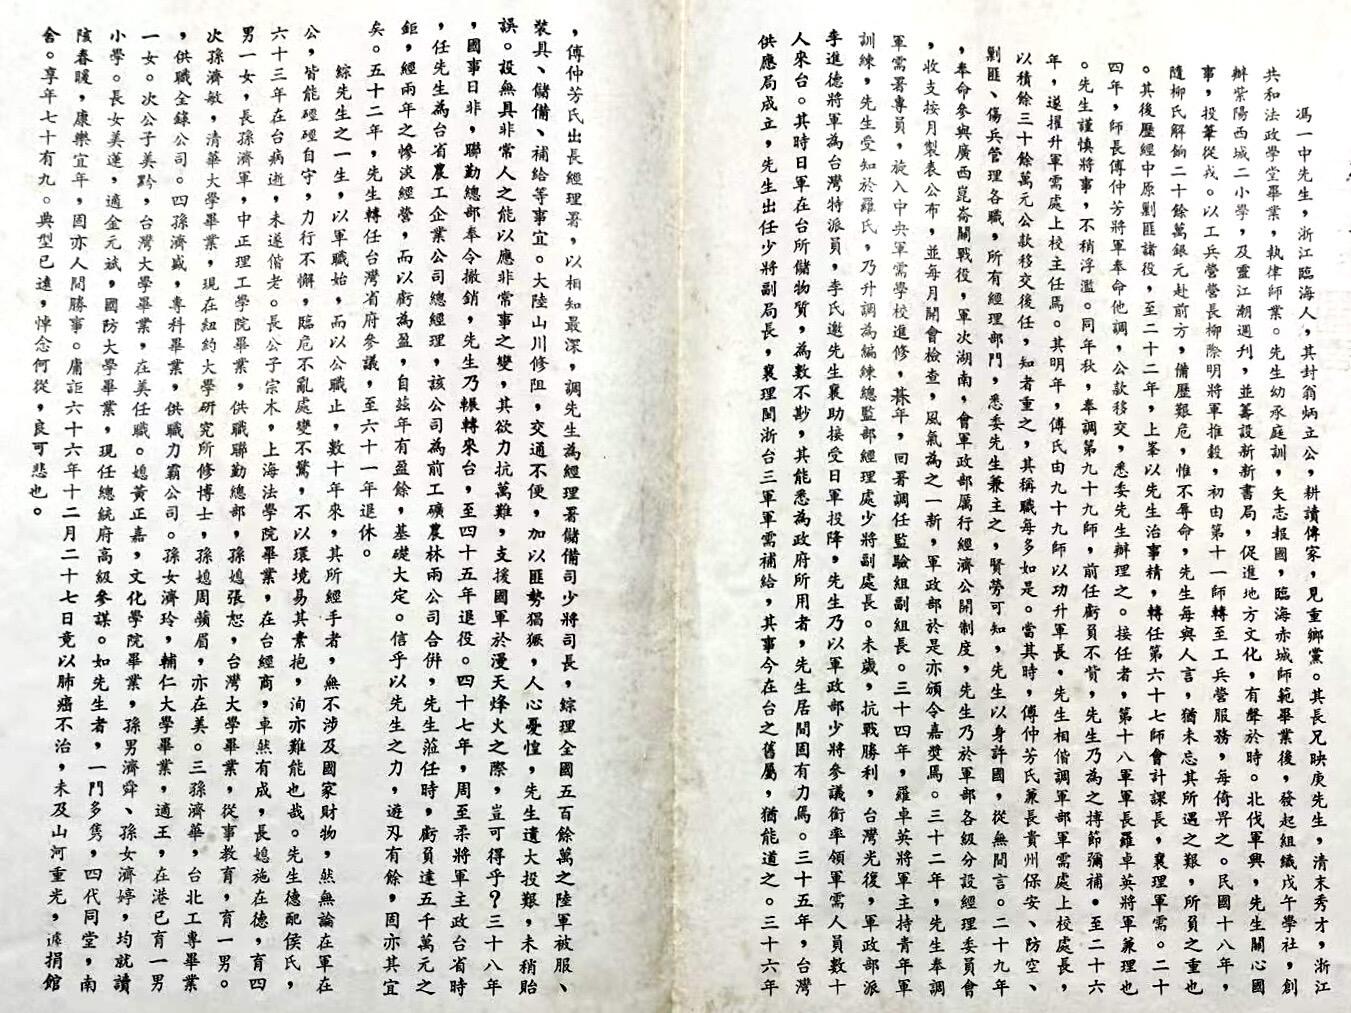 馮一中先生，浙江臨海人，其封翁炳立公，耕讀傳家，見重鄉黨。其長兄映庚先生，清末秀才，浙江
共和法政學堂畢業，執律師業。先生幼承庭訓，矢志報國，臨海赤城師範畢業後，發起組織戌午學社，創
辦紫陽西城二小學，及靈江潮週刊，並籌設新新書局，促進地方文化，有聲於時。北伐軍興，先生關心國
事，投筆從戎。以工兵營營長柳際明將軍推轂，初由第十一師轉至工兵營服務，每倚畀之。民國十八年，
隨柳氏解餉二十餘萬銀元赴前方，備歷艱危，惟不辱命，先生每與人言，猶未忘其所遇之艱，所負之重也
。其後歷經中原剿匪諸役，至二十二年，上峯以先生治事精，轉任第六十七師會計課長，襄理軍需。二十
四年，師長傅仲芳將軍奉命他調，公款移交，悉委先生辦理之。接任者，第十八軍軍長羅卓英將軍兼理也
。先生謹慎將事，不稍浮濫。同年秋，奉調第九十九師，前任虧負不貲，先生乃為之撙節彌補。至二十六
年，遂擢升軍需處上校主任焉。其明年，傅氏由九十九師以功升軍長，先生相偕調軍部軍需處上校處長，
以積餘三十餘萬元公款移交後任，知者重之，其稱職每多如是。當其時，傅仲芳氏兼長貴州保安、防空、
剿匪、傷兵管理各職，所有經理部門，悉委先生兼主之，賢勞可知，先生以身許國，從無間言。二十九年
，奉命參與廣西崑崙關戰役，軍次湖南，會軍政部厲行經濟公開制度，先生乃於軍部各級分設經理委員會
，收支按月製表公布，並每月開會檢查，風氣為之一新，軍政部於是亦頒令嘉獎焉。三十二年，先生奉調
軍需署專員，旋入中央軍需學校進修，朞年，回署調任監驗組副組長。三十四年，羅卓英將軍主持青年軍
訓練，先生受知於羅氏，乃升調為編練總監部經理處少將副處長。未歲，抗戰勝利，台灣光復，軍政部派
李進德將軍為台灣特派員，李氏邀先生襄助接受日軍投降，先生乃以軍政部少將參議銜率領軍需人員數十
人來台。其時日軍在台所儲物質，為數不尠，其能悉為政府所用者，先生居間固有力焉。三十五年，台灣
供應局成立，先生出任少將副局長，襄理閩浙台三軍軍需補給，其事今在台之舊屬，猶能道之。三十六年
，傅仲芳氏出長經理署，以相知最深，調先生為經理署儲備司少將司長，綜理全國五百餘萬之陸軍被服、
裝具、儲備、補給等事宜。大陸山川修阻，交通不便，加以匪勢猖獗，人心憂惶，先生遺大投艱，未稍貽
誤。設無具非常人之能以應非常事之變，其欲力抗萬難，支援國軍於漫天烽火之際，豈可得乎？三十八年
，國事日非，聯勤總部奉令撤銷，先生乃輾轉來台，至四十五年退役。四十七年，周至柔將軍主政台省時
，任先生為台省農工企業公司總經理，該公司為前工礦農林兩公司合併，先生蒞任時，虧負達五千萬元之
鉅，經兩年之慘淡經營，而以虧為盈，自茲年有盈餘，基礎大定。信乎以先生之力，遊刃有餘，固亦其宜
矣。五十二年，先生轉任台灣省府參議，至六十一年退休。
綜先生之一生，以軍職始，而以公職止，數十年來，其所經手者，無不涉及國家財物，然無論在軍在
公，皆能硜硜自守，力行不懈，臨危不亂處變不驚，不以環境易其素抱，洵亦難能也哉。先生德配侯氏，
六十三年在台病逝，未遂偕老。長公子宗木，上海法學院畢業，在台經商，卓然有成，長媳施在德，育四
男一女，長孫濟軍，中正理工學院畢業，供職聯勤總部，孫媳張恕，台灣大學畢業，從事教育，育一男。
次孫濟敏，清華大學畢業，現在紐約大學研究所修博士，孫媳周蘋眉，亦在美。三孫濟華，台北工專畢業
，供職全錄公司。四孫濟崴，專科畢業，供職力霸公司。孫女濟玲，輔仁大學畢業，適王，在港已育一男
一女。次公子美黔，台灣大學畢業，在美任職。媳黃正嘉，文化學院畢業，孫男濟舜、孫女濟婷，均就讀
小學。長女美蓮，適金元斌，國防大學畢業，現任總統府高級參謀。如先生者，一門多雋，四代同堂，南
陔春暖，康樂宜年，固亦人間勝事。庸詎六十六年十二月二十七日竟以肺癌不治，未及山河重光，遽捐館
舍。享年七十有九。典型已遠，悼念何從，良可悲也。